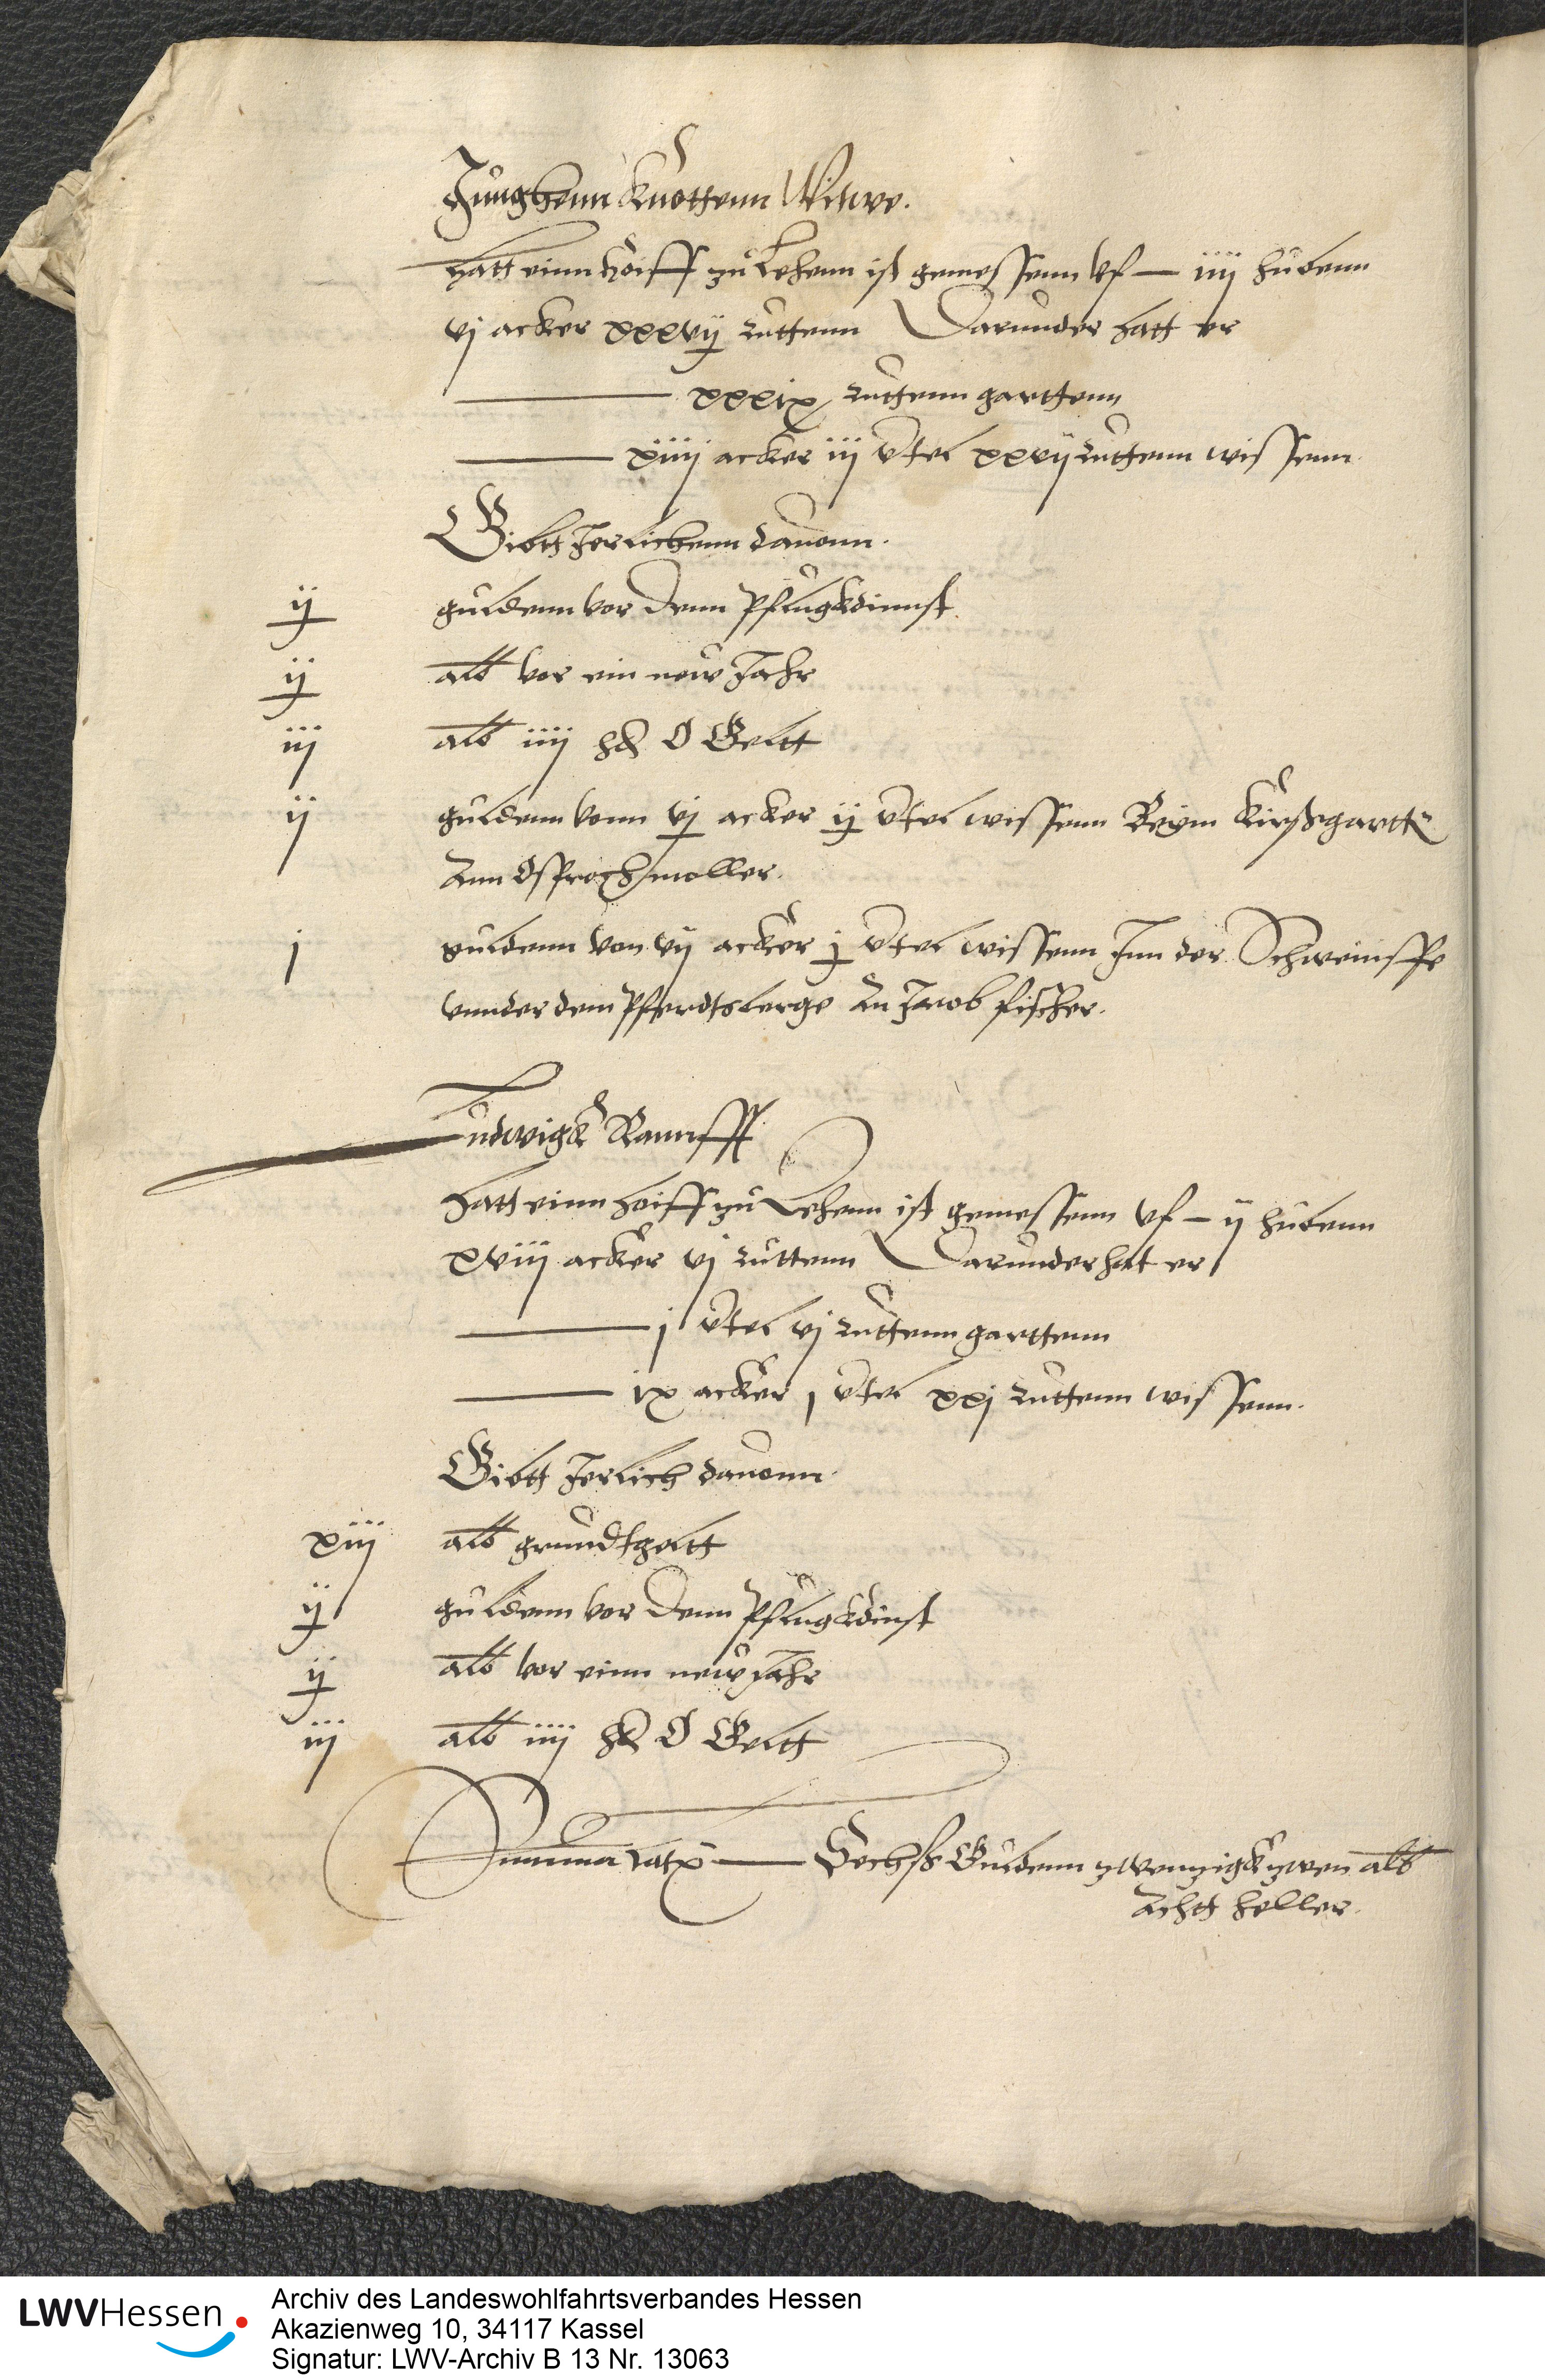 Junghenn Knottenn Witwe.
Hatt einn hoiff zu Lehenn ist gemessenn vf — iiij hubenn
vj acker xxxvij ruttenn Darunder hatt er
— xxxix ruttenn garttenn
— xiiij acker iij vrtel xxvij ruttenn wissenn
Gibtt Jerlichenn dauonn.
ij guldenn vor denn Pflugkdinnst
ij alb vor ein new Jahr
iij alb iiij hlr Geltt
ij guldenn vonn vj acker ij vrtel wissenn Beym
Ann moller.
j guldenn von vij acker j vrtel wissenn Inn der Schweinsffe
vnnder dem Pferdtsberge An Jacob fischer.
Ludwigk Ranfft
Hatt einn hoiff zu Lehenn ist gemessenn vf — ij hubenn
xviij acker vj ruttenn Darunder hat er
— j vrtel vj ruttenn garttenn
— ix acker j vrtel xxj ruttenn wissenn.
Gibtt Jerlich dauonn
xiij alb grundtgeltt
ij guldenn vor denn Pflugkdinst
ij alb vor einn new Jahr
iij alb iiij hlr Geltt
Summa — Sechss Guldenn zwenzigk zwen alb
Achtt heller.
LWVHessen
Archiv des Landeswohlfahrtsverbandes Hessen
Akazienweg 10, 34117 Kassel
Signatur: LWV-Archiv B 13 Nr. 13063